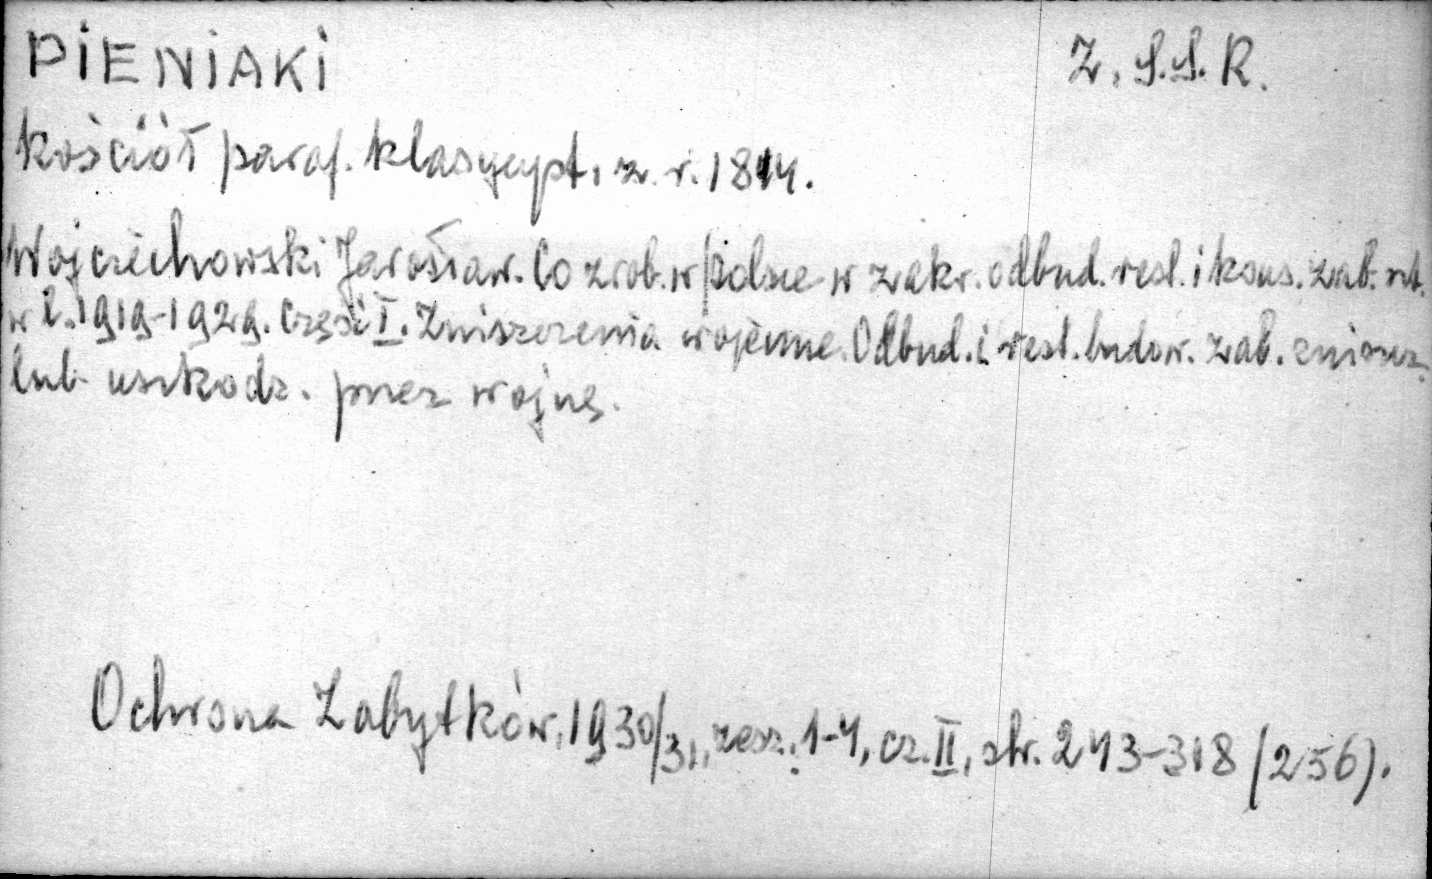 PIENIAKI Z.S.S.R.
Kościół paraf. klasycyst. z r. 1814.
Wojciechowski Jarosław. Co zrob. w Polsce w zakr. odbud. rest. i kons. zab. szt.
w l. 1919-1929. Część I. Zniszczenia wojenne. Odbud. i rest. budow. zab. zniszcz.
lub uszkodz. przez wojnę.
Ochrona Zabytków, 1930/31, zesz. 1-4, cz. II, str. 243-318 (256).